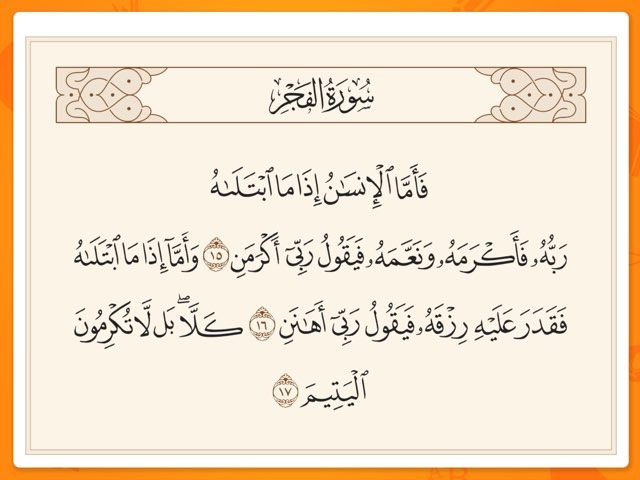 سُورَةُ الفَجْرِ
فَأَمَّا ٱلْإِنسَٰنُ إِذَا مَا ٱبْتَلَىٰهُ
رَبُّهُۥ فَأَكْرَمَهُۥ وَنَعَّمَهُۥ فَيَقُولُ رَبِّىٓ أَكْرَمَنِ ١٥ وَأَمَّآ إِذَا مَا ٱبْتَلَىٰهُ
فَقَدَرَ عَلَيْهِ رِزْقَهُۥ فَيَقُولُ رَبِّىٓ أَهَٰنَنِ ١٦ كَلَّاۖ بَل لَّا تُكْرِمُونَ
ٱلْيَتِيمَ ١٧